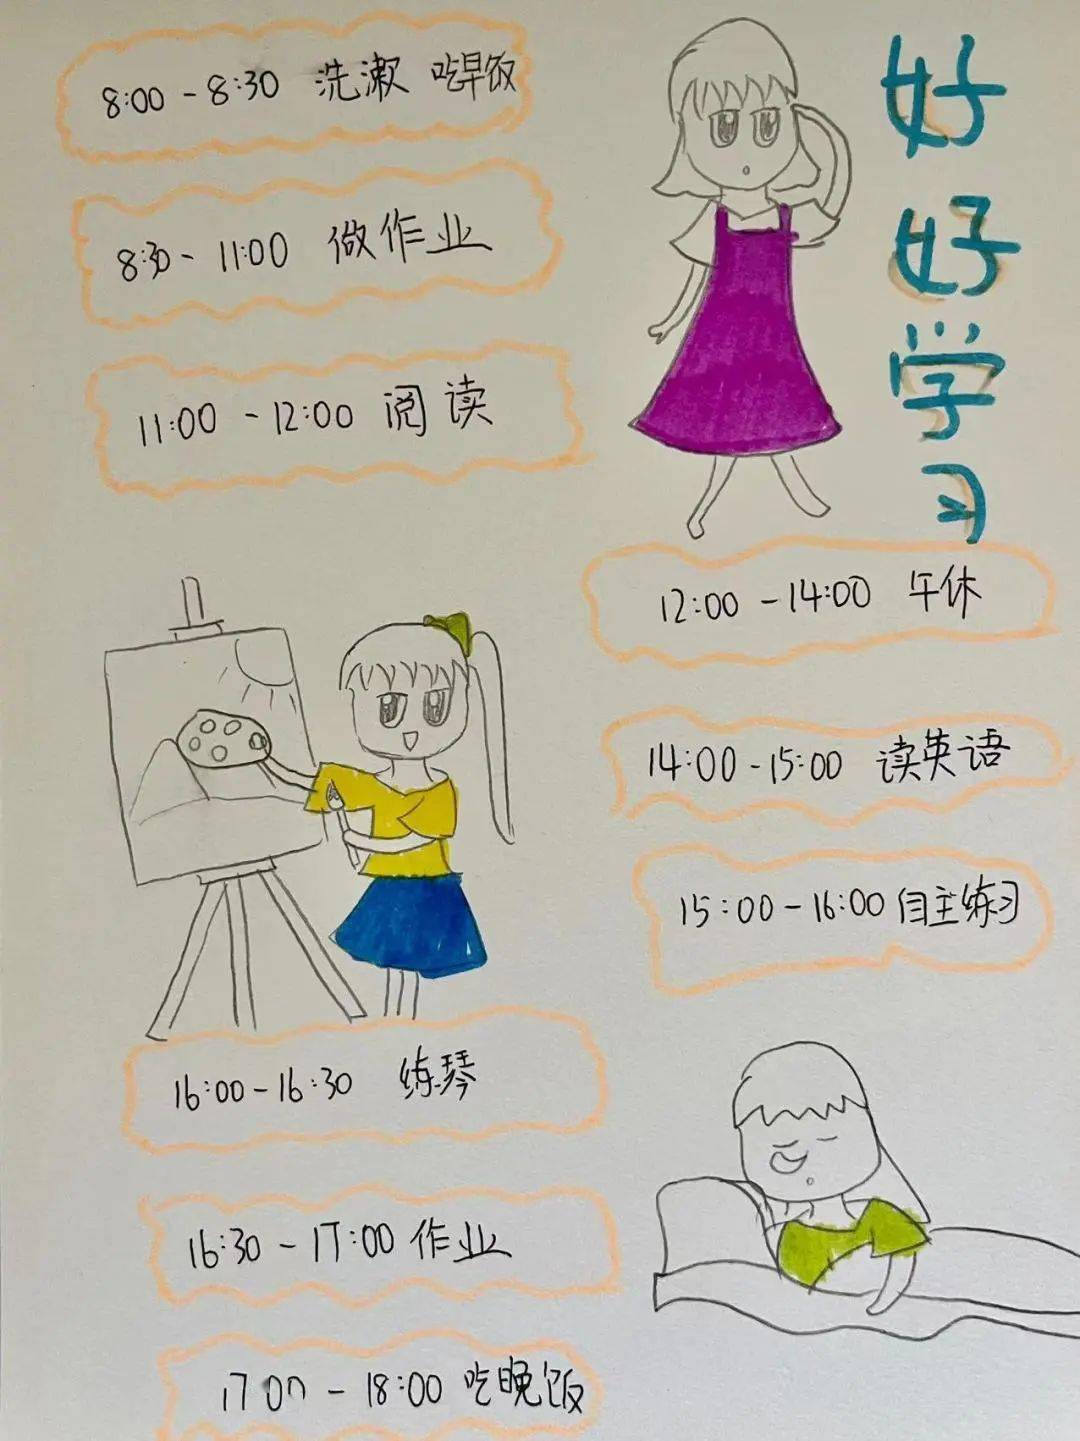 8:00-8:30 洗漱 吃早饭
8:30-11:00 做作业
11:00-12:00 阅读
好好学习
12:00-14:00 午休
14:00-15:00 读英语
15:00-16:00 自主练习
16:00-16:30 练琴
16:30-17:00 作业
17:00-18:00 吃晚饭